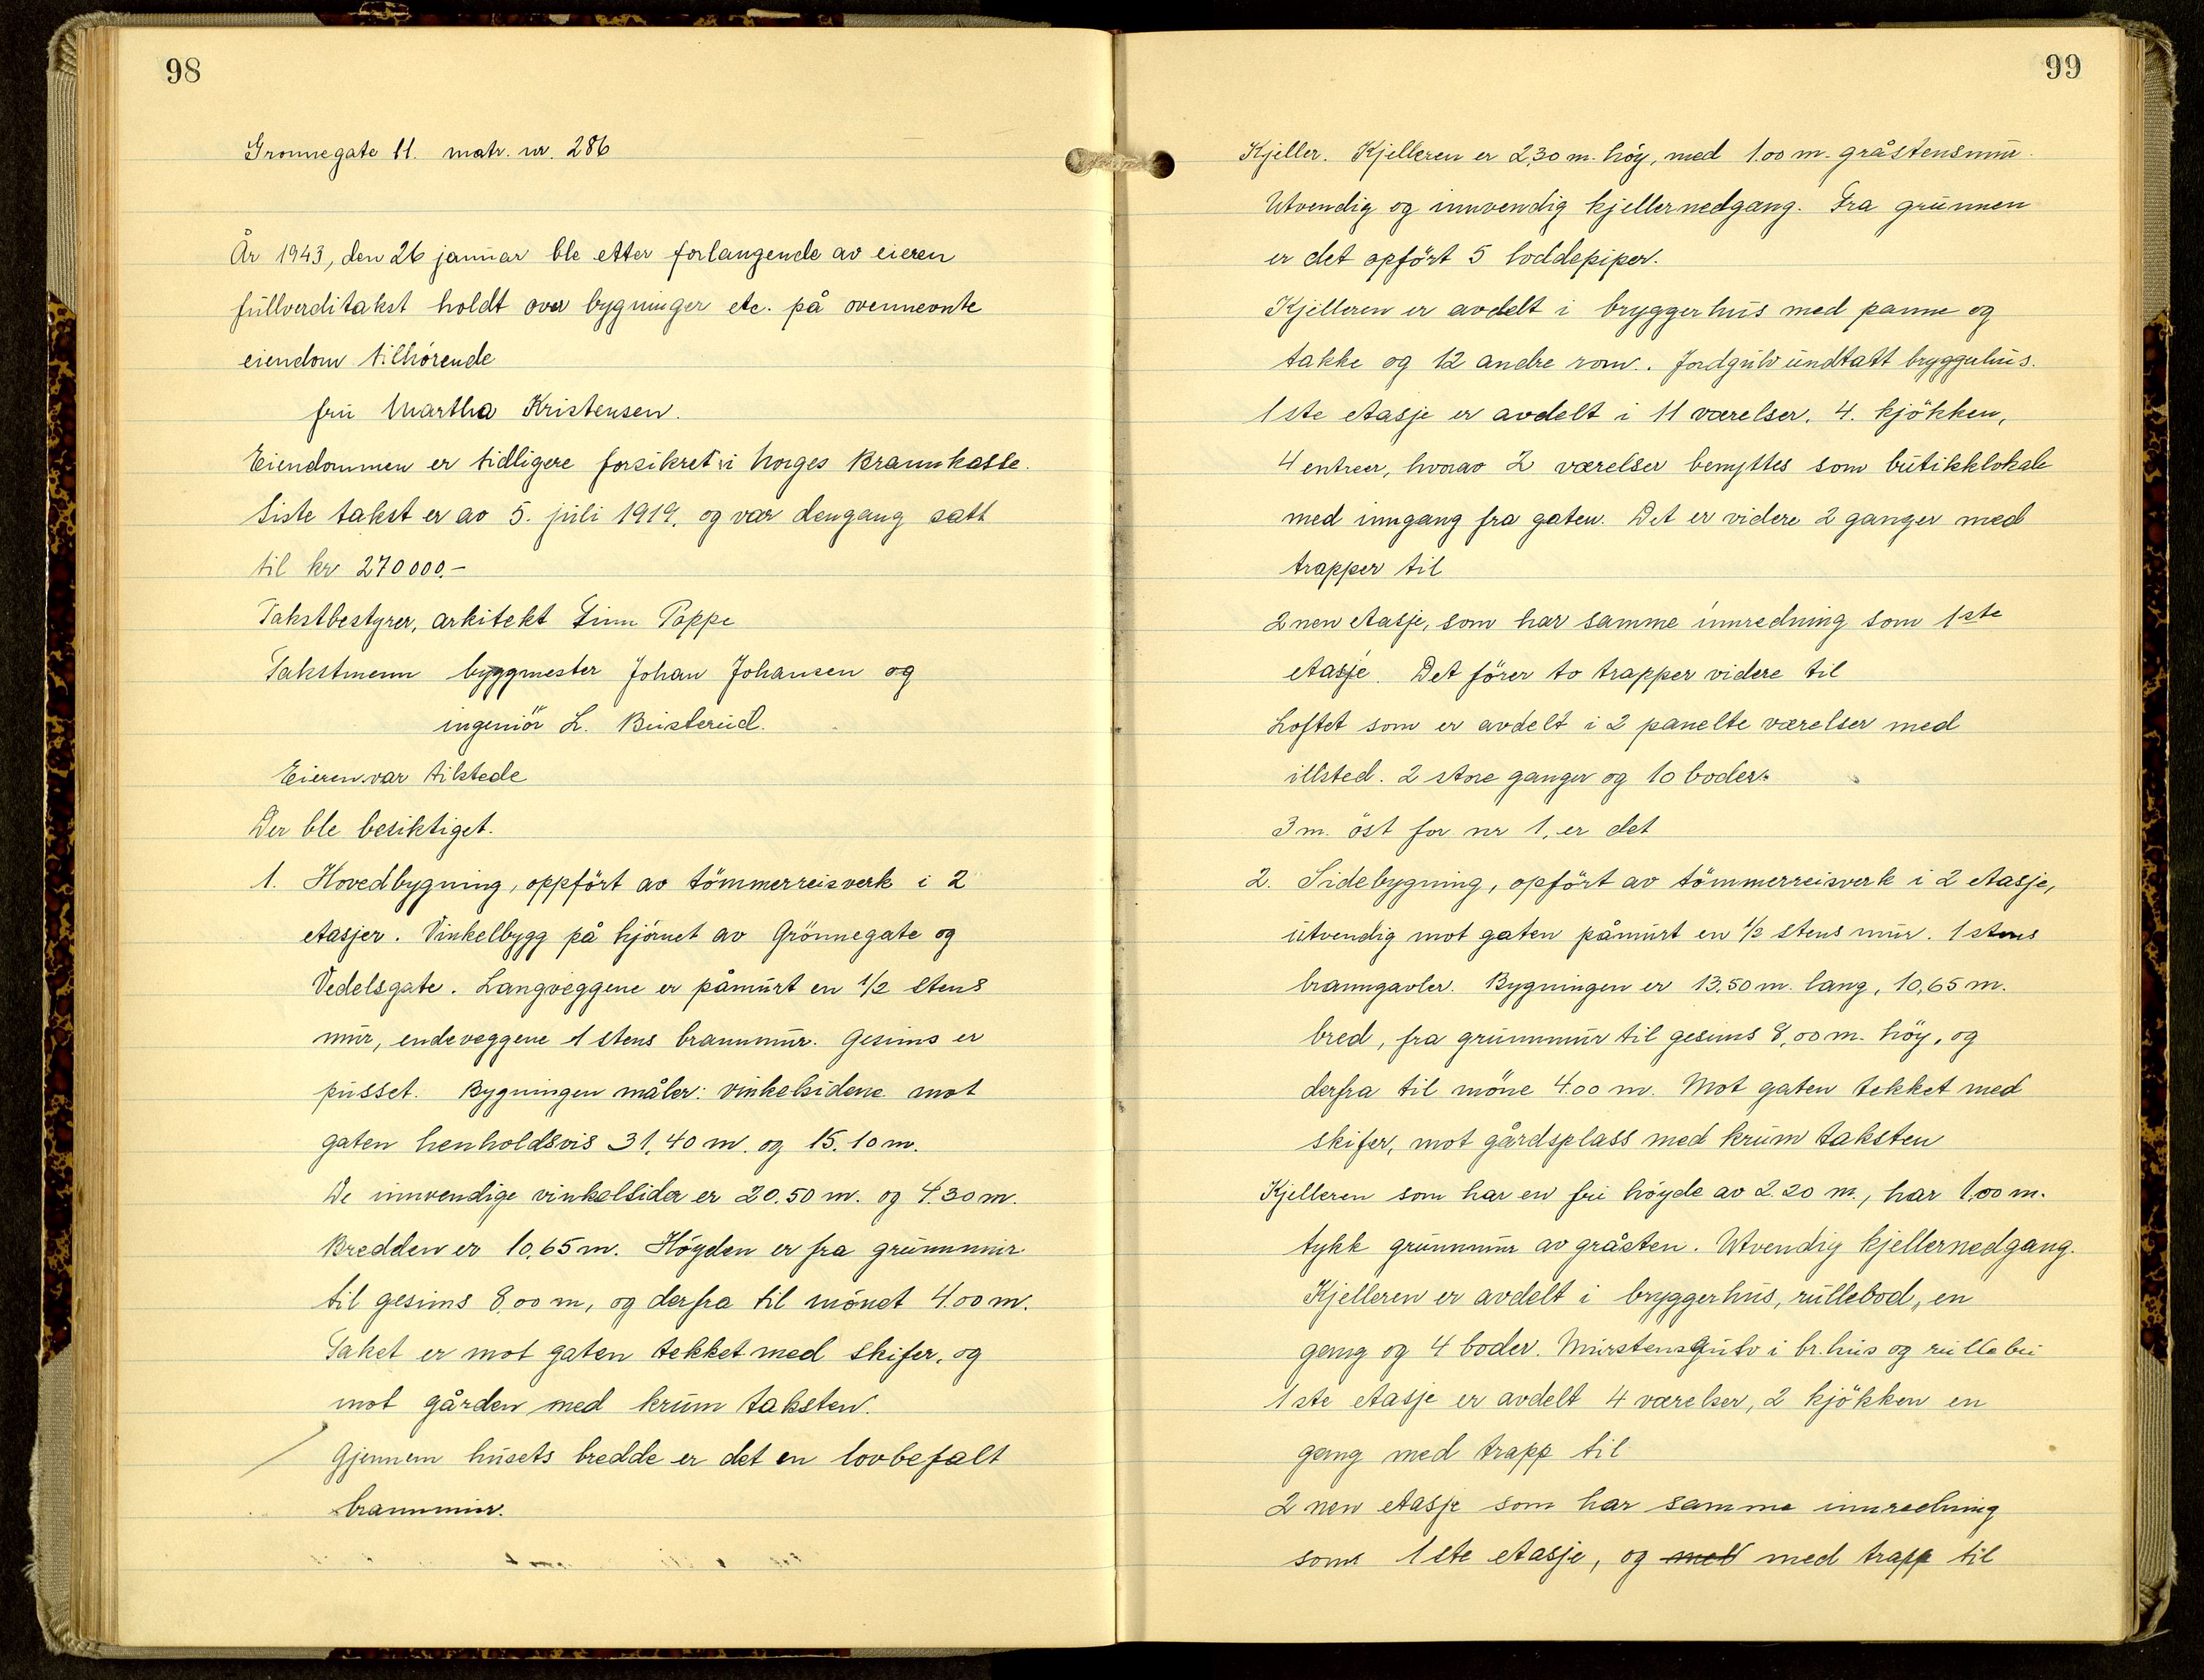 98
Grönnegate 11. matr. nr. 286
År 1943, den 26 januar ble etter forlangende av eieren
fullverditakst holdt over bygninger etc. på ovennevnte
eiendom tilhörende
fru Martha Kristensen.
Eiendommen er tidligere forsikret i Norges Brannkasse.
Siste takst er av 5. juli 1919, og var dengang satt
til kr 270000.-
Takstbestyrer, arkitekt Finn Poppe
Takstmenn byggmester Johan Johansen og
ingeniör L. Busterud.
Eieren var tilstede
Der ble besiktiget.
1. Hovedbygning, oppfört av tömmerreisverk i 2
etasjer. Vinkelbygg på hjörnet av Grönnegate og
Vedelsgate. Langveggene er påmurt en 1/2 stens
mur, endeveggene 1 stens brannmur. Gesims er
pusset. Bygningen måler: vinkelsidene mot
gaten henholdsvis 31,40 m. og 15.10 m.
De innvendige vinkelsider er 20.50 m. og 4.30 m.
Bredden er 10,65 m. Höyden er fra grunnmur
til gesims 8,00 m, og derfra til mönet 4.00 m.
Taket er mot gaten tekket med skifer, og
mot gården med krum taksten.
Gjennem husets bredde er det en lovbefalt
brannmur.
99
Kjeller. Kjelleren er 2,30 m. höy, med 1.00 m. gråstensmur.
Utvendig og innvendig kjellernedgang. Fra grunnen
er det opfört 5 loddepiper.
Kjelleren er avdelt i bryggerhus med panne og
takke og 12 andre rom. Jordgulv undtatt bryggerhus.
1ste etasje er avdelt i 11 værelser, 4. kjökken,
4 entreer, hvorav 2 værelser benyttes som butikklokale
med inngang fra gaten. Det er videre 2 ganger med
trapper til
2nen etasje, som har samme innredning som 1ste
etasje. Det förer to trapper videre til
Loftet som er avdelt i 2 panelte værelser med
illsted. 2 store ganger og 10 boder.
3 m. öst for nr 1, er det
2. Sidebygning, opfört av tömmerreisverk i 2 etasje,
utvendig mot gaten påmurt en 1/2 stens mur. 1 stens
branngavler. Bygningen er 13,50 m. lang, 10,65 m.
bred, fra grunnmur til gesims 8,00 m. höy, og
derfra til möne 4.00 m. Mot gaten tekket med
skifer, mot gårdsplass med krum taksten
Kjelleren som har en fri höyde av 2.20 m., har 1,00 m.
tykk grunnmur av gråsten. Utvendig kjellernedgang.
Kjelleren er avdelt i bryggerhus, rullebod, en
gang og 4 boder. Murstensgulv i br.hus og rullebu
1ste etasje er avdelt 4 værelser, 2 kjökken en
gang med trapp til
2nen etasje som har samme innredning
som 1ste etasje, og med med trapp til